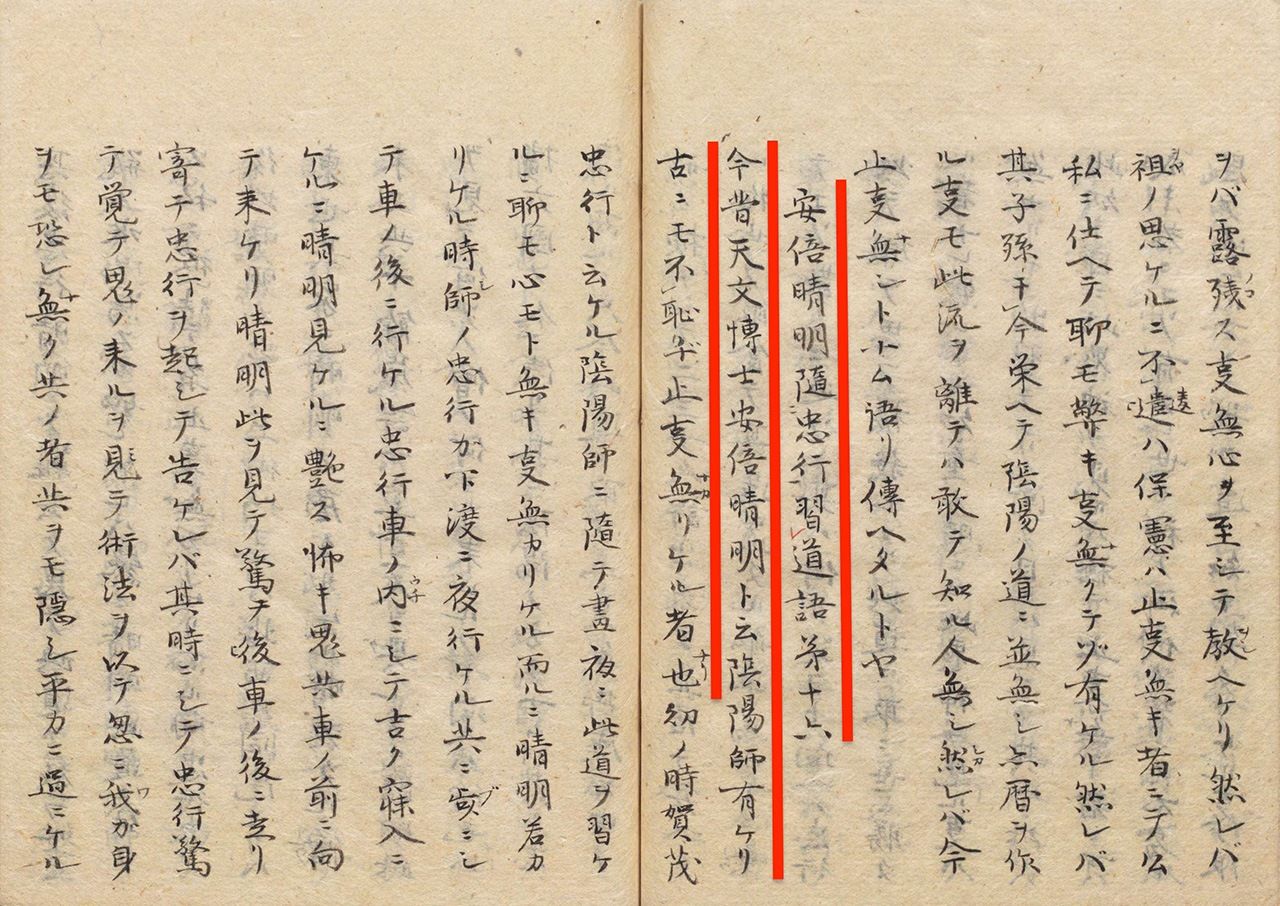 ヲバ露残ス事無心ヲ至シテ教ヘケリ然レバ
祖ノ思ケルニ不違ハ保憲ハ止事無キ者ニテ公
私ニ仕ヘテ聊モ弊キ事無クテゾ有ケル然レバ
其子孫于今栄ヘテ陰陽ノ道ニ並無シ亦暦ヲ作
ル事モ此流ヲ離テハ敢テ知ル人無シ然レバ今
止事無シトナム語リ傳ヘタルトヤ
安倍晴明随忠行習道語第十六
今昔天文博士安倍晴明ト云陰陽師有ケリ
古ニモ不恥ヂ止事無リケル者也初ノ時賀茂
忠行ト云ケル陰陽師ニ随テ晝夜ニ此道ヲ習ケ
ルニ聊モ心モト無キ事無カリケル而ルニ晴明若カ
リケル時師ノ忠行ガ下渡ニ夜行ケル共ニ歩ミシ
テ車ノ後ニ行ケル忠行車ノ内ニシテ吉ク寐入ニ
ケルニ晴明見ケルニ艶ズ怖キ鬼共車ノ前ニ向
テ来ケリ晴明此ヲ見テ驚テ後車ノ後ニ走リ
寄テ忠行ヲ起シテ告ケレバ其時ニシテ忠行驚
テ覚テ鬼ノ来ルヲ見テ術法ヲ以テ忽ニ我ガ身
ヲモ恐レ無ク共ノ者共ヲモ隠シ平カニ過ニケル